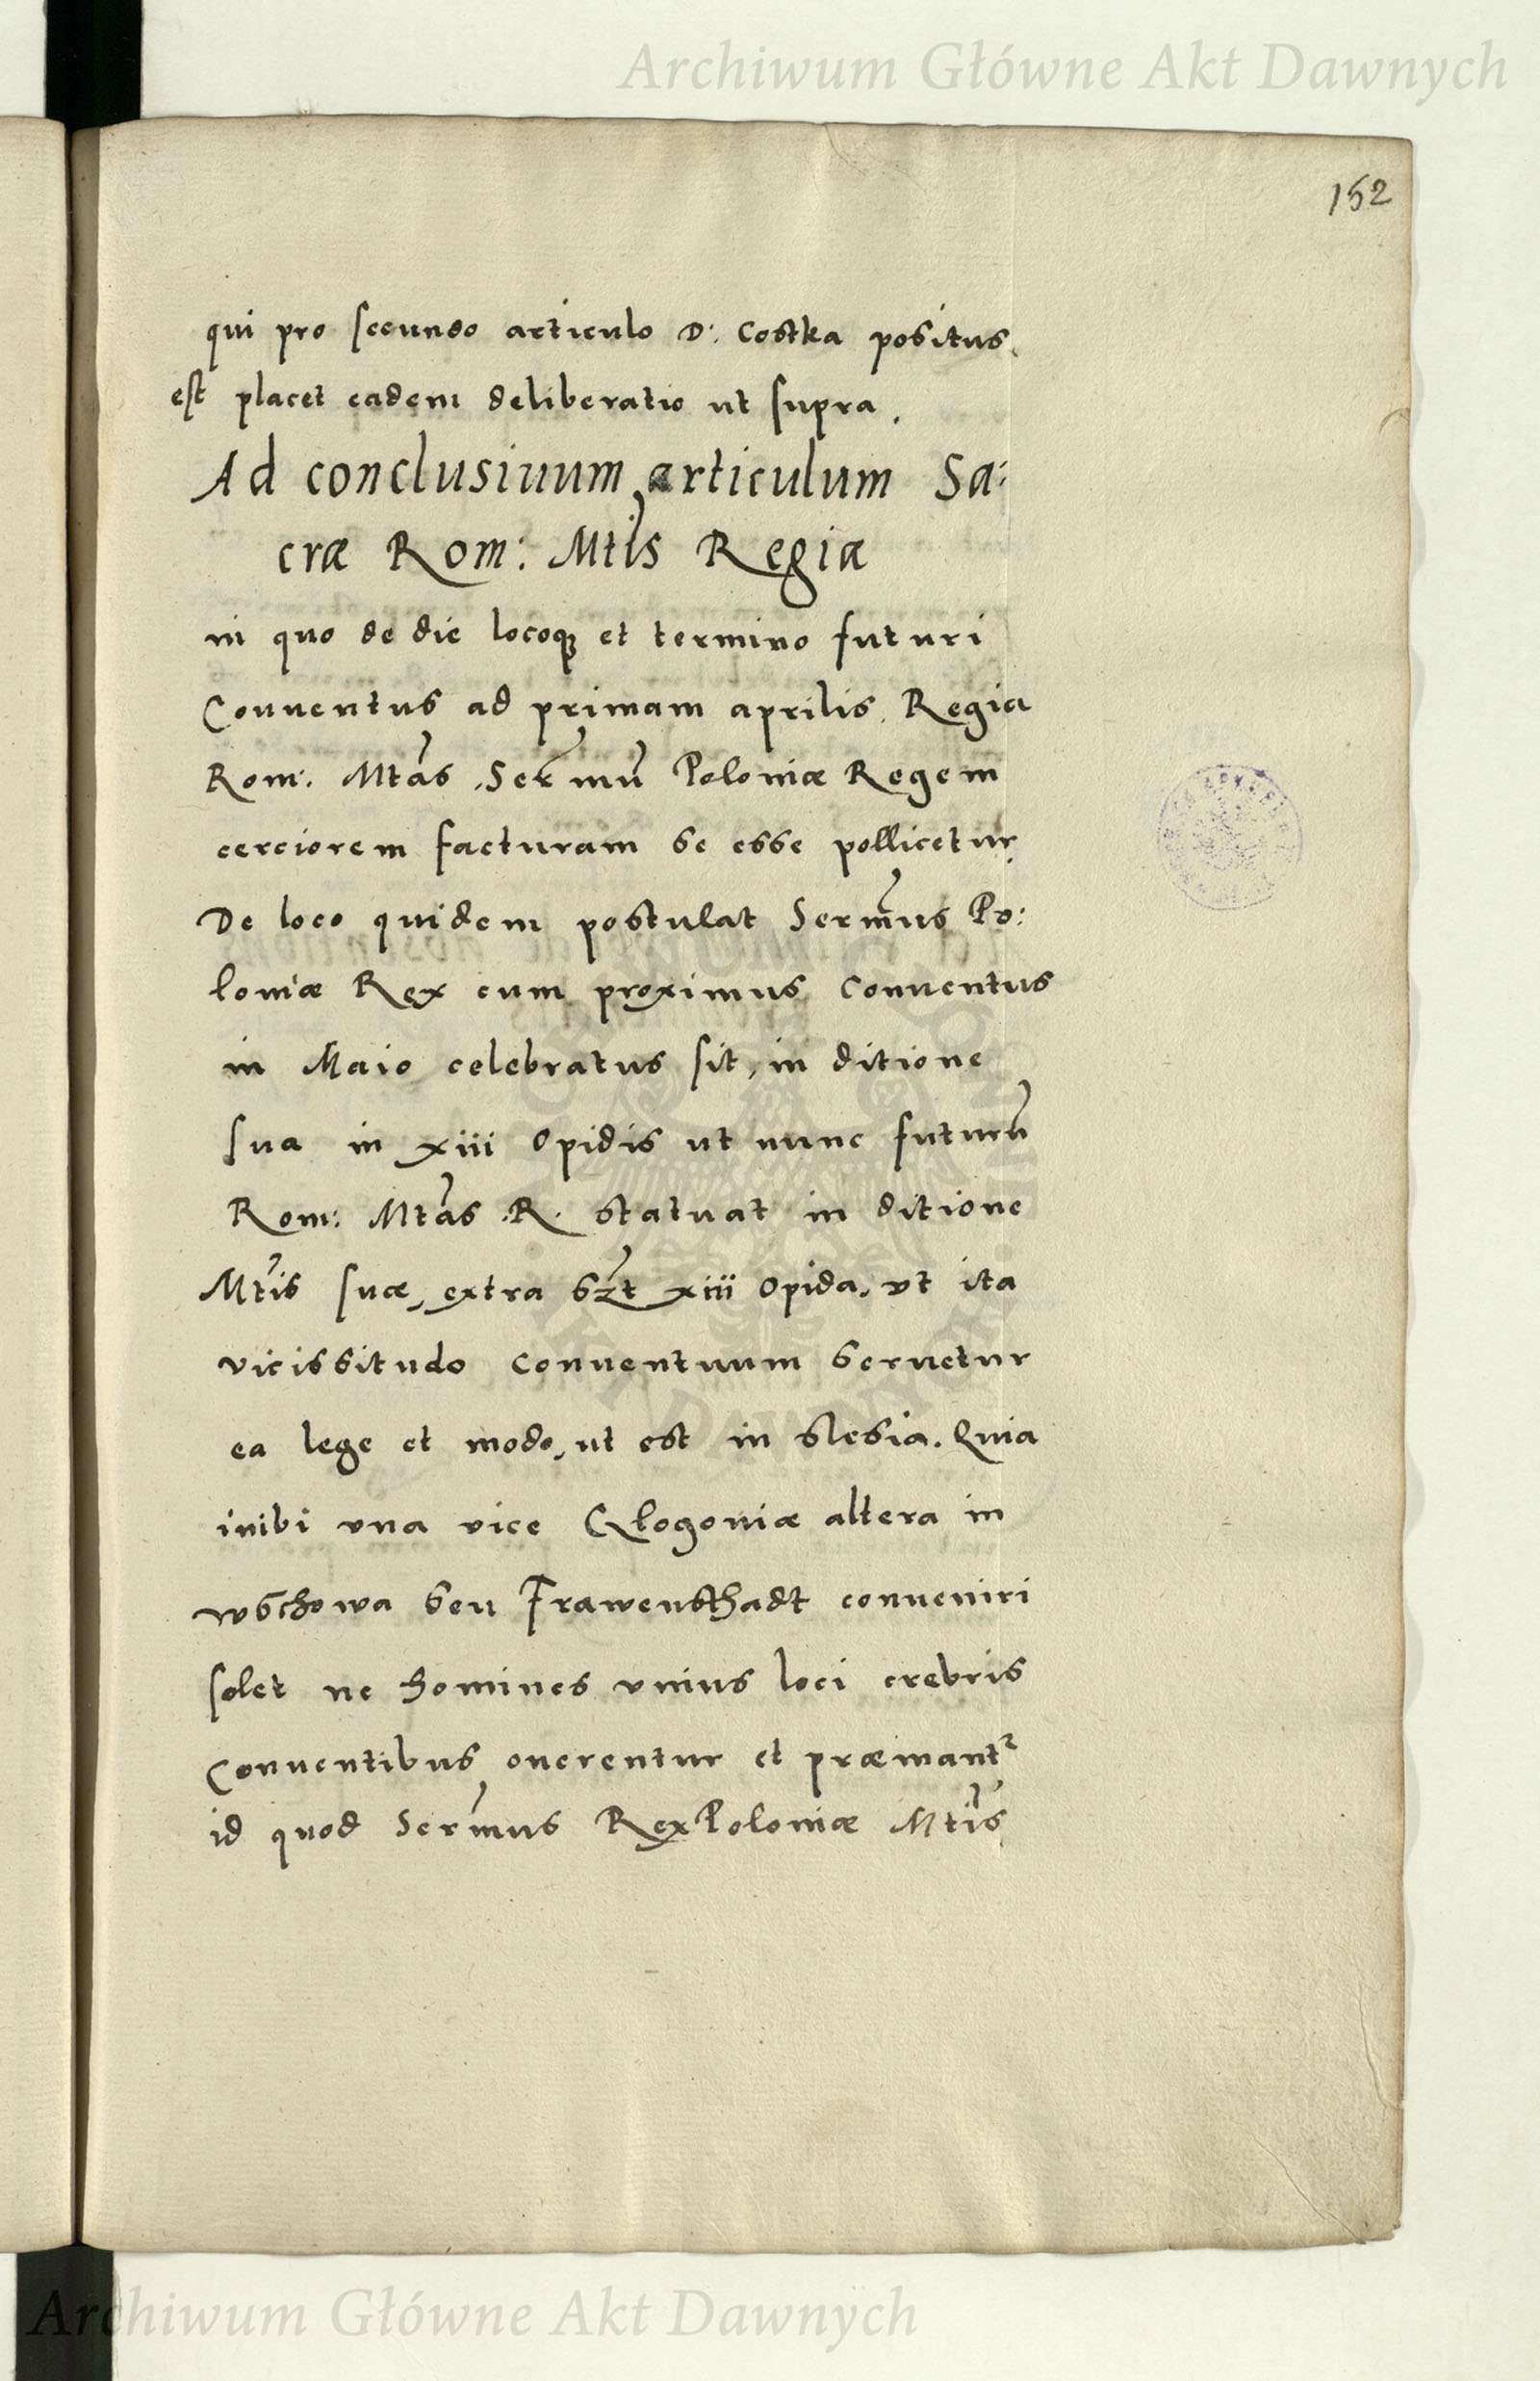 Archiwum Główne Akt Dawnych
152
qui pro secundo articulo D: Costka positus
est placet eadem deliberatio ut supra.
Ad conclusiuum articulum Sa:
cræ Rom: Mtis Regiæ
in quo de die locoq3 et termino futuri
Conuentus ad primam aprilis. Regia
Rom: Mtas Sermu Poloniæ Regem
cerciorem facturam se esse pollicetur
De loco quidem postulat Sermus Po:
loniæ Rex cum proximus conuentus
in Maio celebratus sit, in ditione
sua in xiii opidis ut nunc futuru
Rom: Mtas .R. statuat in ditione
Mtis suæ, extra xiii opida, vt ita
vicissitudo conuentuum seruetur
ea lege et modo, ut est in slesia. Quia
inibi vna vice Glogoniæ altera in
wschowa seu Frawensthadt conueniri
solet ne homines vnius loci crebris
Conuentibus onerentur et præmant
id quod Sermus Rex Poloniæ Mtis
Archiwum Główne Akt Dawnych